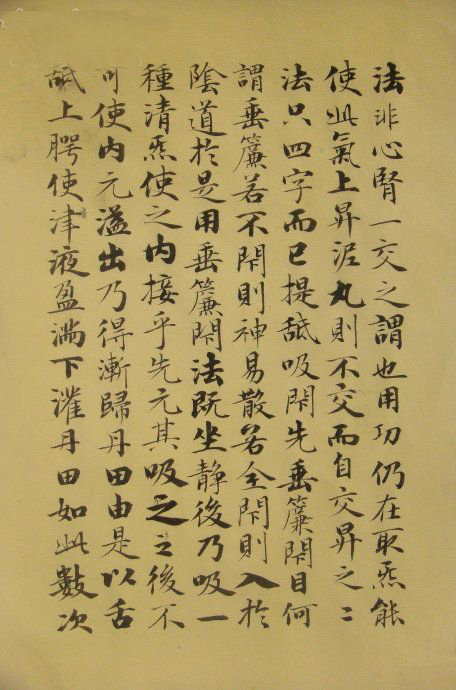 法非心腎一交之謂也用功仍在取炁能
使此氣上昇泥丸則不交而自交昇之〻
法只四字而已提䑛吸閇先垂簾閇目何
謂垂簾若不閇則神易散若全閇則入於
陰道於是用垂簾閇法既坐静後乃吸一
種清炁使之内接乎先元其吸之之後不
可使内元溢出乃得漸歸丹田由是以舌
䑛上腭使津液盈滿下灌丹田如此數次